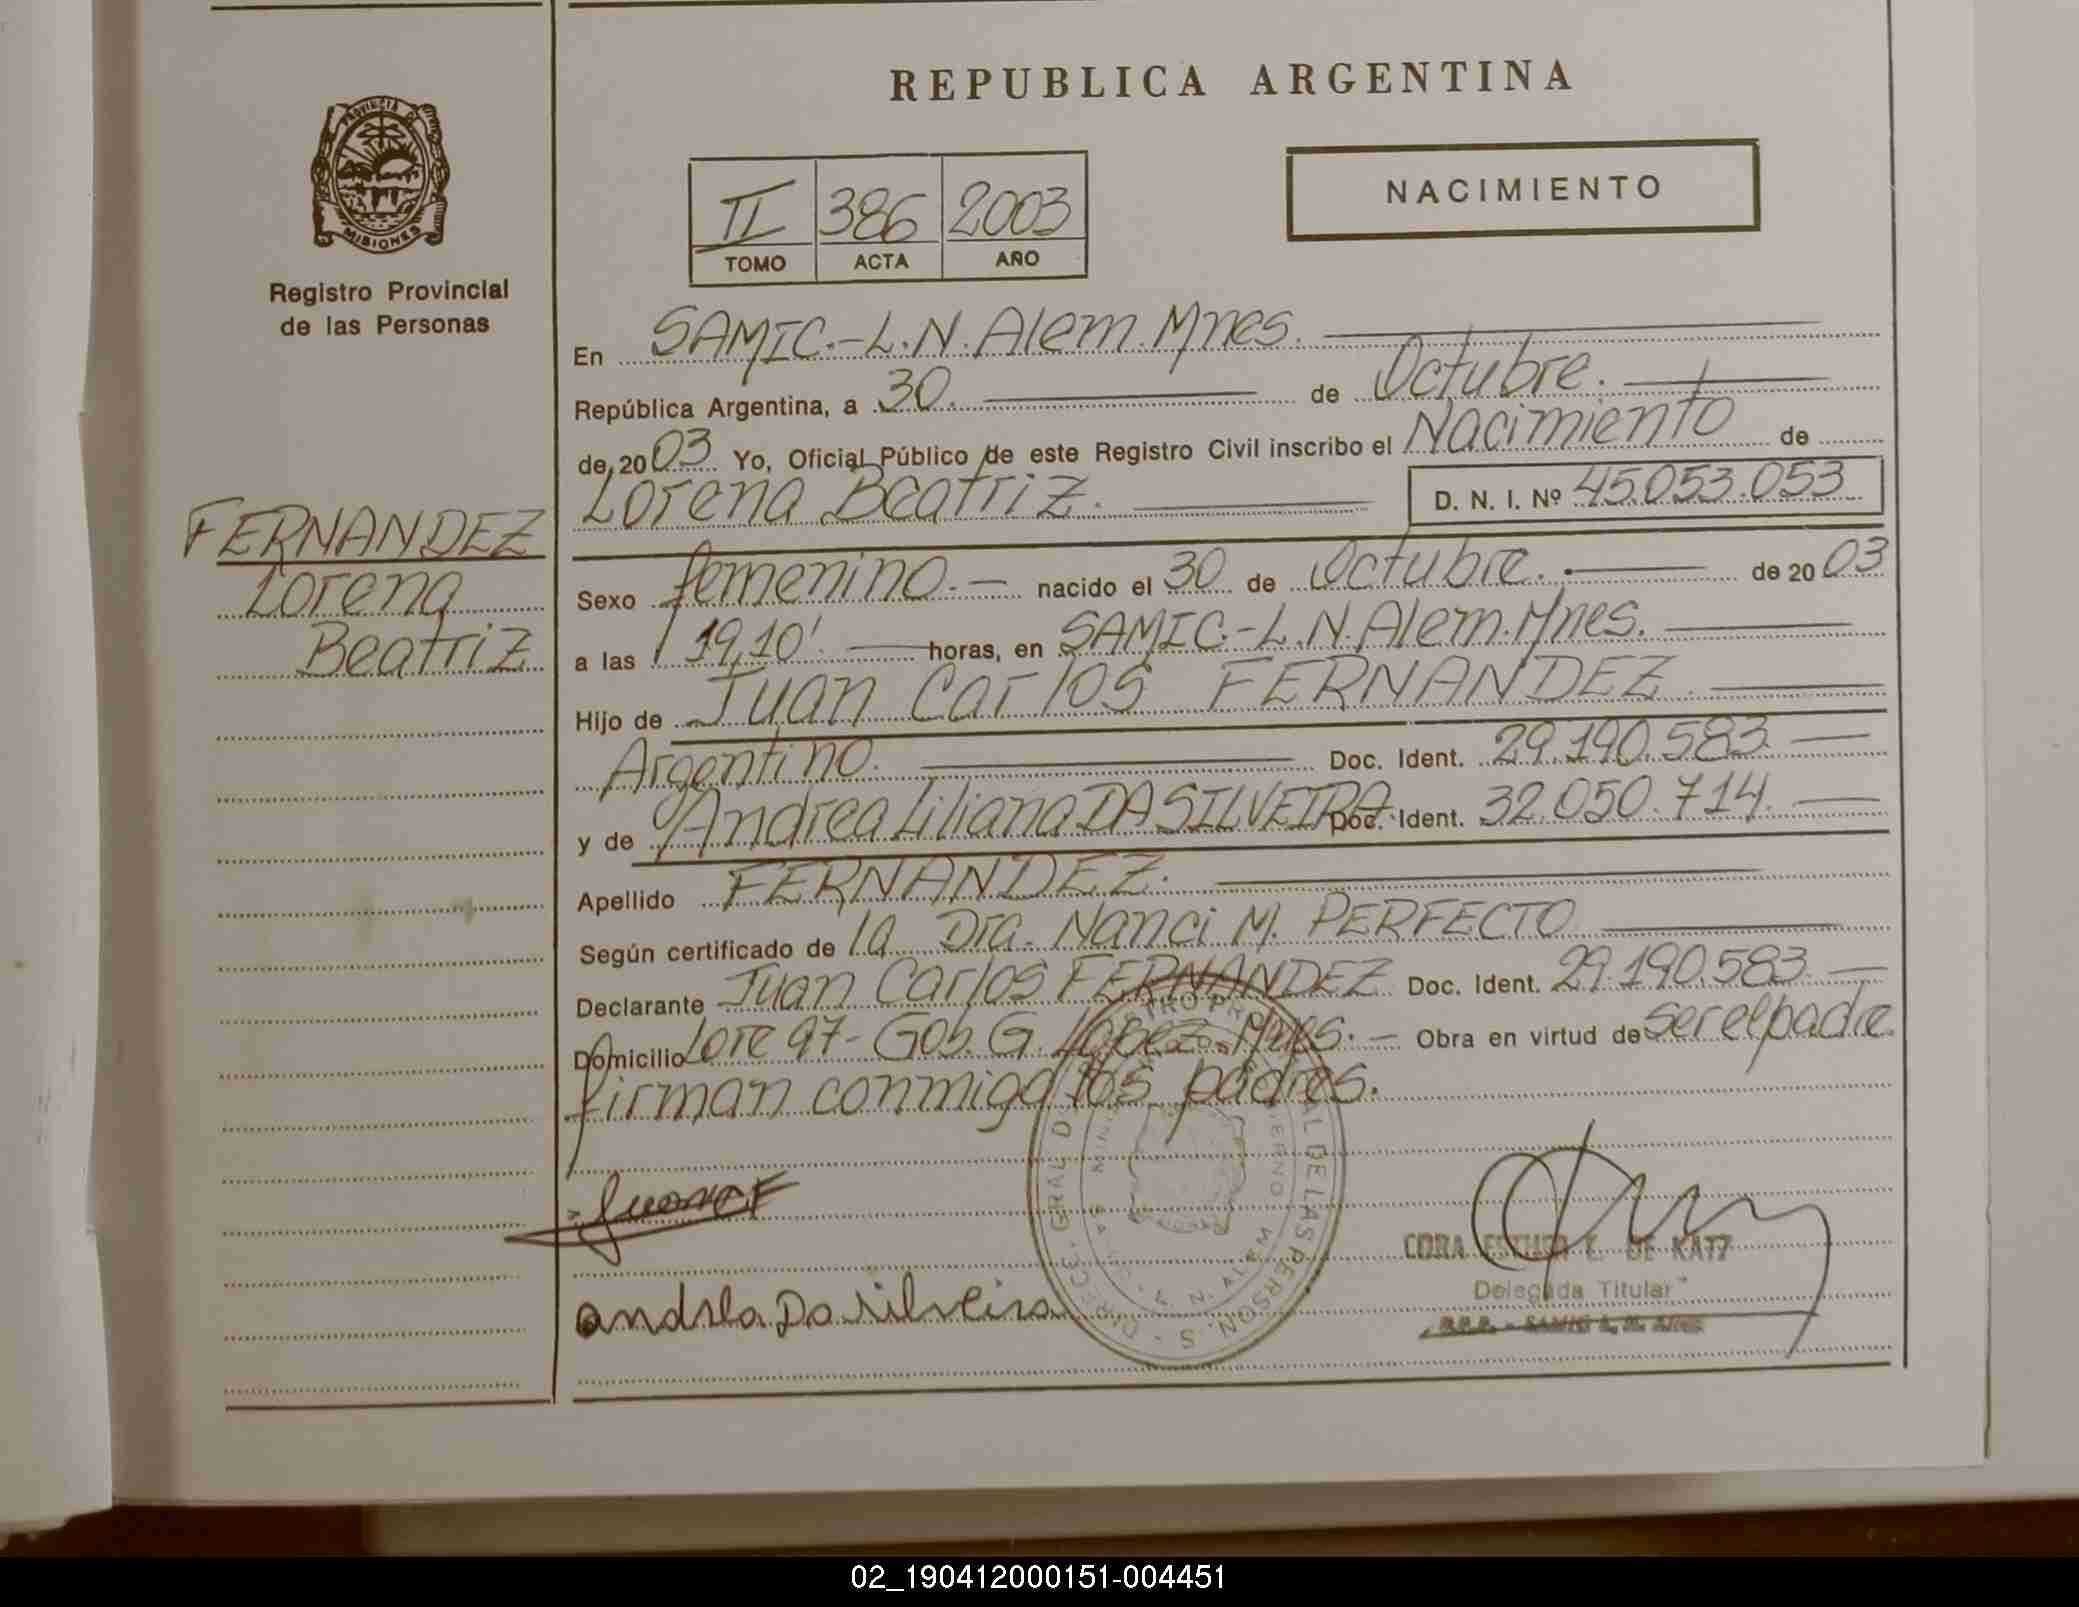 REPUBLICA ARGENTINA
PROVINCIA DE
MISIONES
Registro Provincial
de las Personas
II 386 2003
TOMO ACTA AÑO
NACIMIENTO
FERNANDEZ
Lorena
Beatriz
En SAMIC.-L.N.Alem.Mnes.
República Argentina, a 30. de Octubre.
de 2003 Yo, Oficial Público de este Registro Civil inscribo el Nacimiento de
Lorena Beatriz. D. N. I. Nº 45.053.053
Sexo femenino.- nacido el 30 de Octubre. de 2003
a las 19,10' horas, en SAMIC.-L.N.Alem.Mnes.
Hijo de Juan Carlos FERNANDEZ
Argentino. Doc. Ident. 29.190.583.
y de Andrea Liliana DA SILVEIRA Doc. Ident. 32.050.714.
Apellido FERNANDEZ.
Según certificado de la Dra. Nanci M. PERFECTO
Declarante Juan Carlos FERNANDEZ Doc. Ident. 29.190.583.
Domicilio Lote 97- Gob. G. Lopez. Mnes.- Obra en virtud de ser el padre
firman conmigo los padres.
Juan F
andrea Da silveira
CORA ESTHER DE KATZ
Delegada Titular
02_190412000151-004451